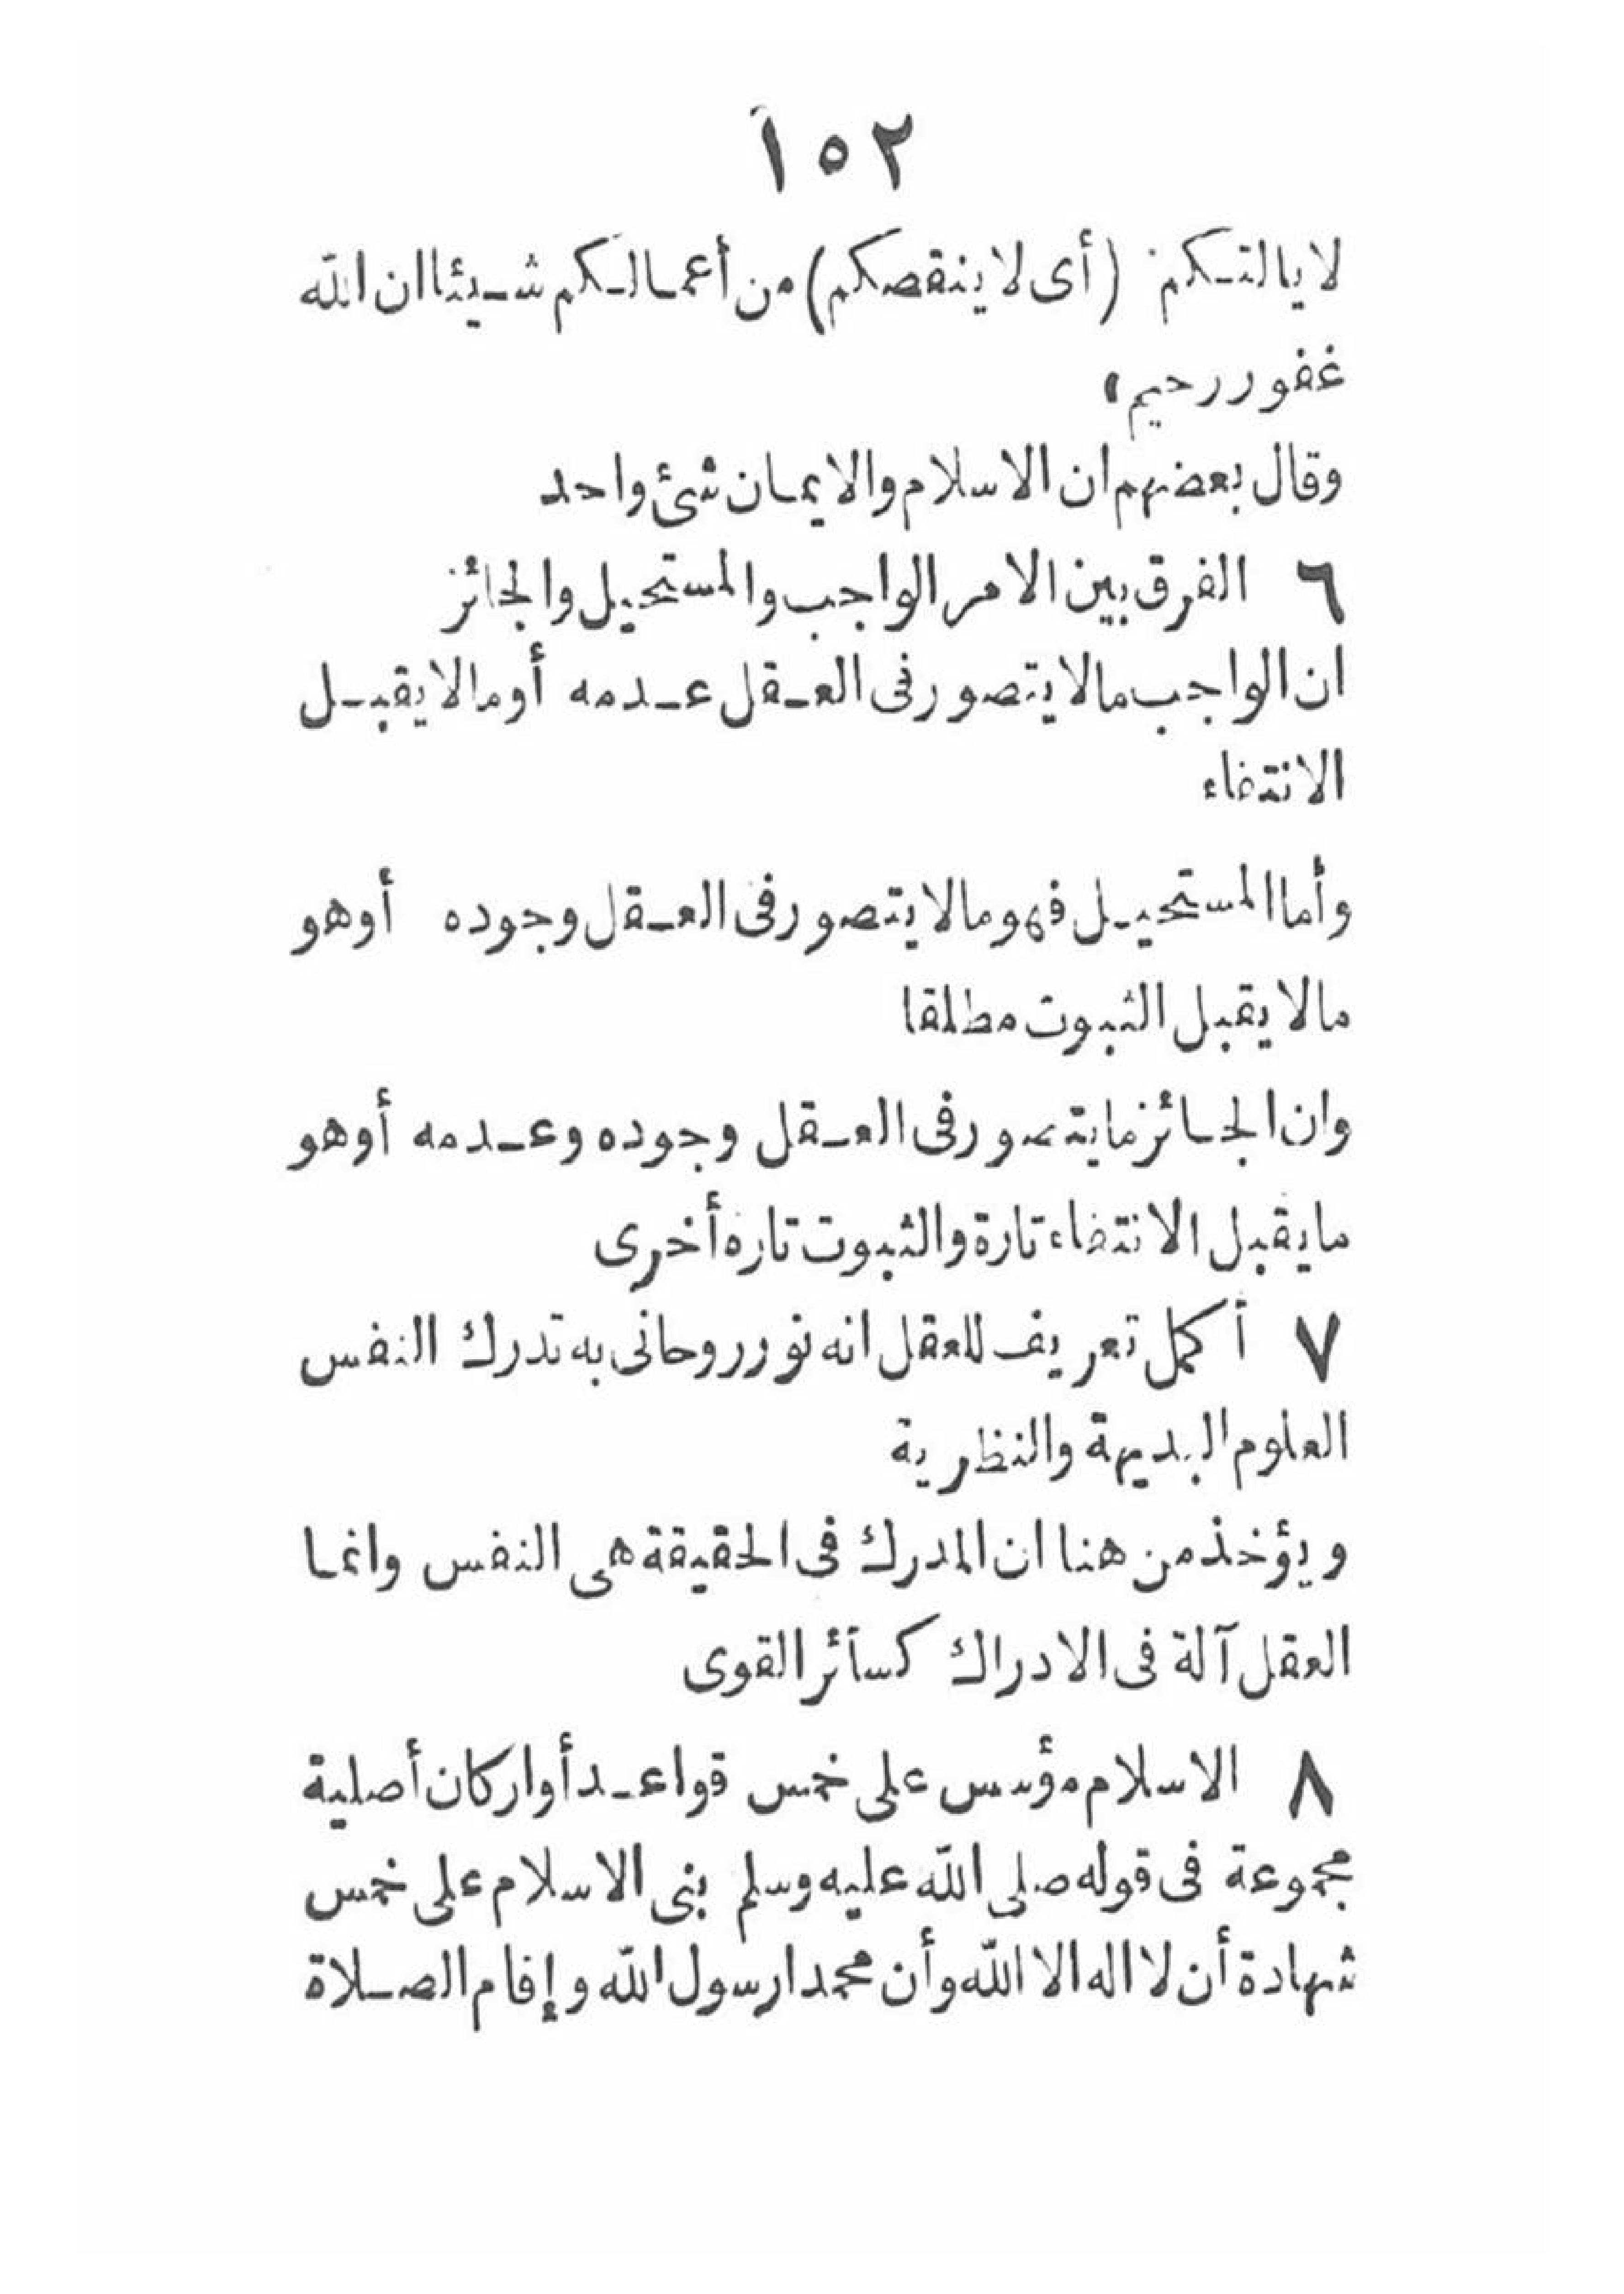 ١٥٢
لا يالتكم (أى لا ينقصكم) من أعمالكم شيئا ان الله
غفور رحيم،
وقال بعضهم ان الاسلام والايمان شئ واحد
٦ الفرق بين الامر الواجب والمستحيل والجائز
ان الواجب مالا يتصور فى العقل عدمه أو مالا يقبل
الانتفاء
وأما المستحيل فهو مالا يتصور فى العقل وجوده أو هو
مالا يقبل الثبوت مطلقا
وان الجائز ما يتصور فى العقل وجوده وعدمه أو هو
ما يقبل الانتفاء تارة والثبوت تارة أخرى
٧ أكمل تعريف للعقل انه نور روحانى به تدرك النفس
العلوم البديهة والنظرية
ويؤخذ من هنا ان المدرك فى الحقيقة هى النفس وانما
العقل آلة فى الادراك كسائر القوى
٨ الاسلام مؤسس على خمس قواعد أو اركان أصلية
مجموعة فى قوله صلى الله عليه وسلم بنى الاسلام على خمس
شهادة أن لا اله الا الله وأن محمدا رسول الله وإقام الصلاة